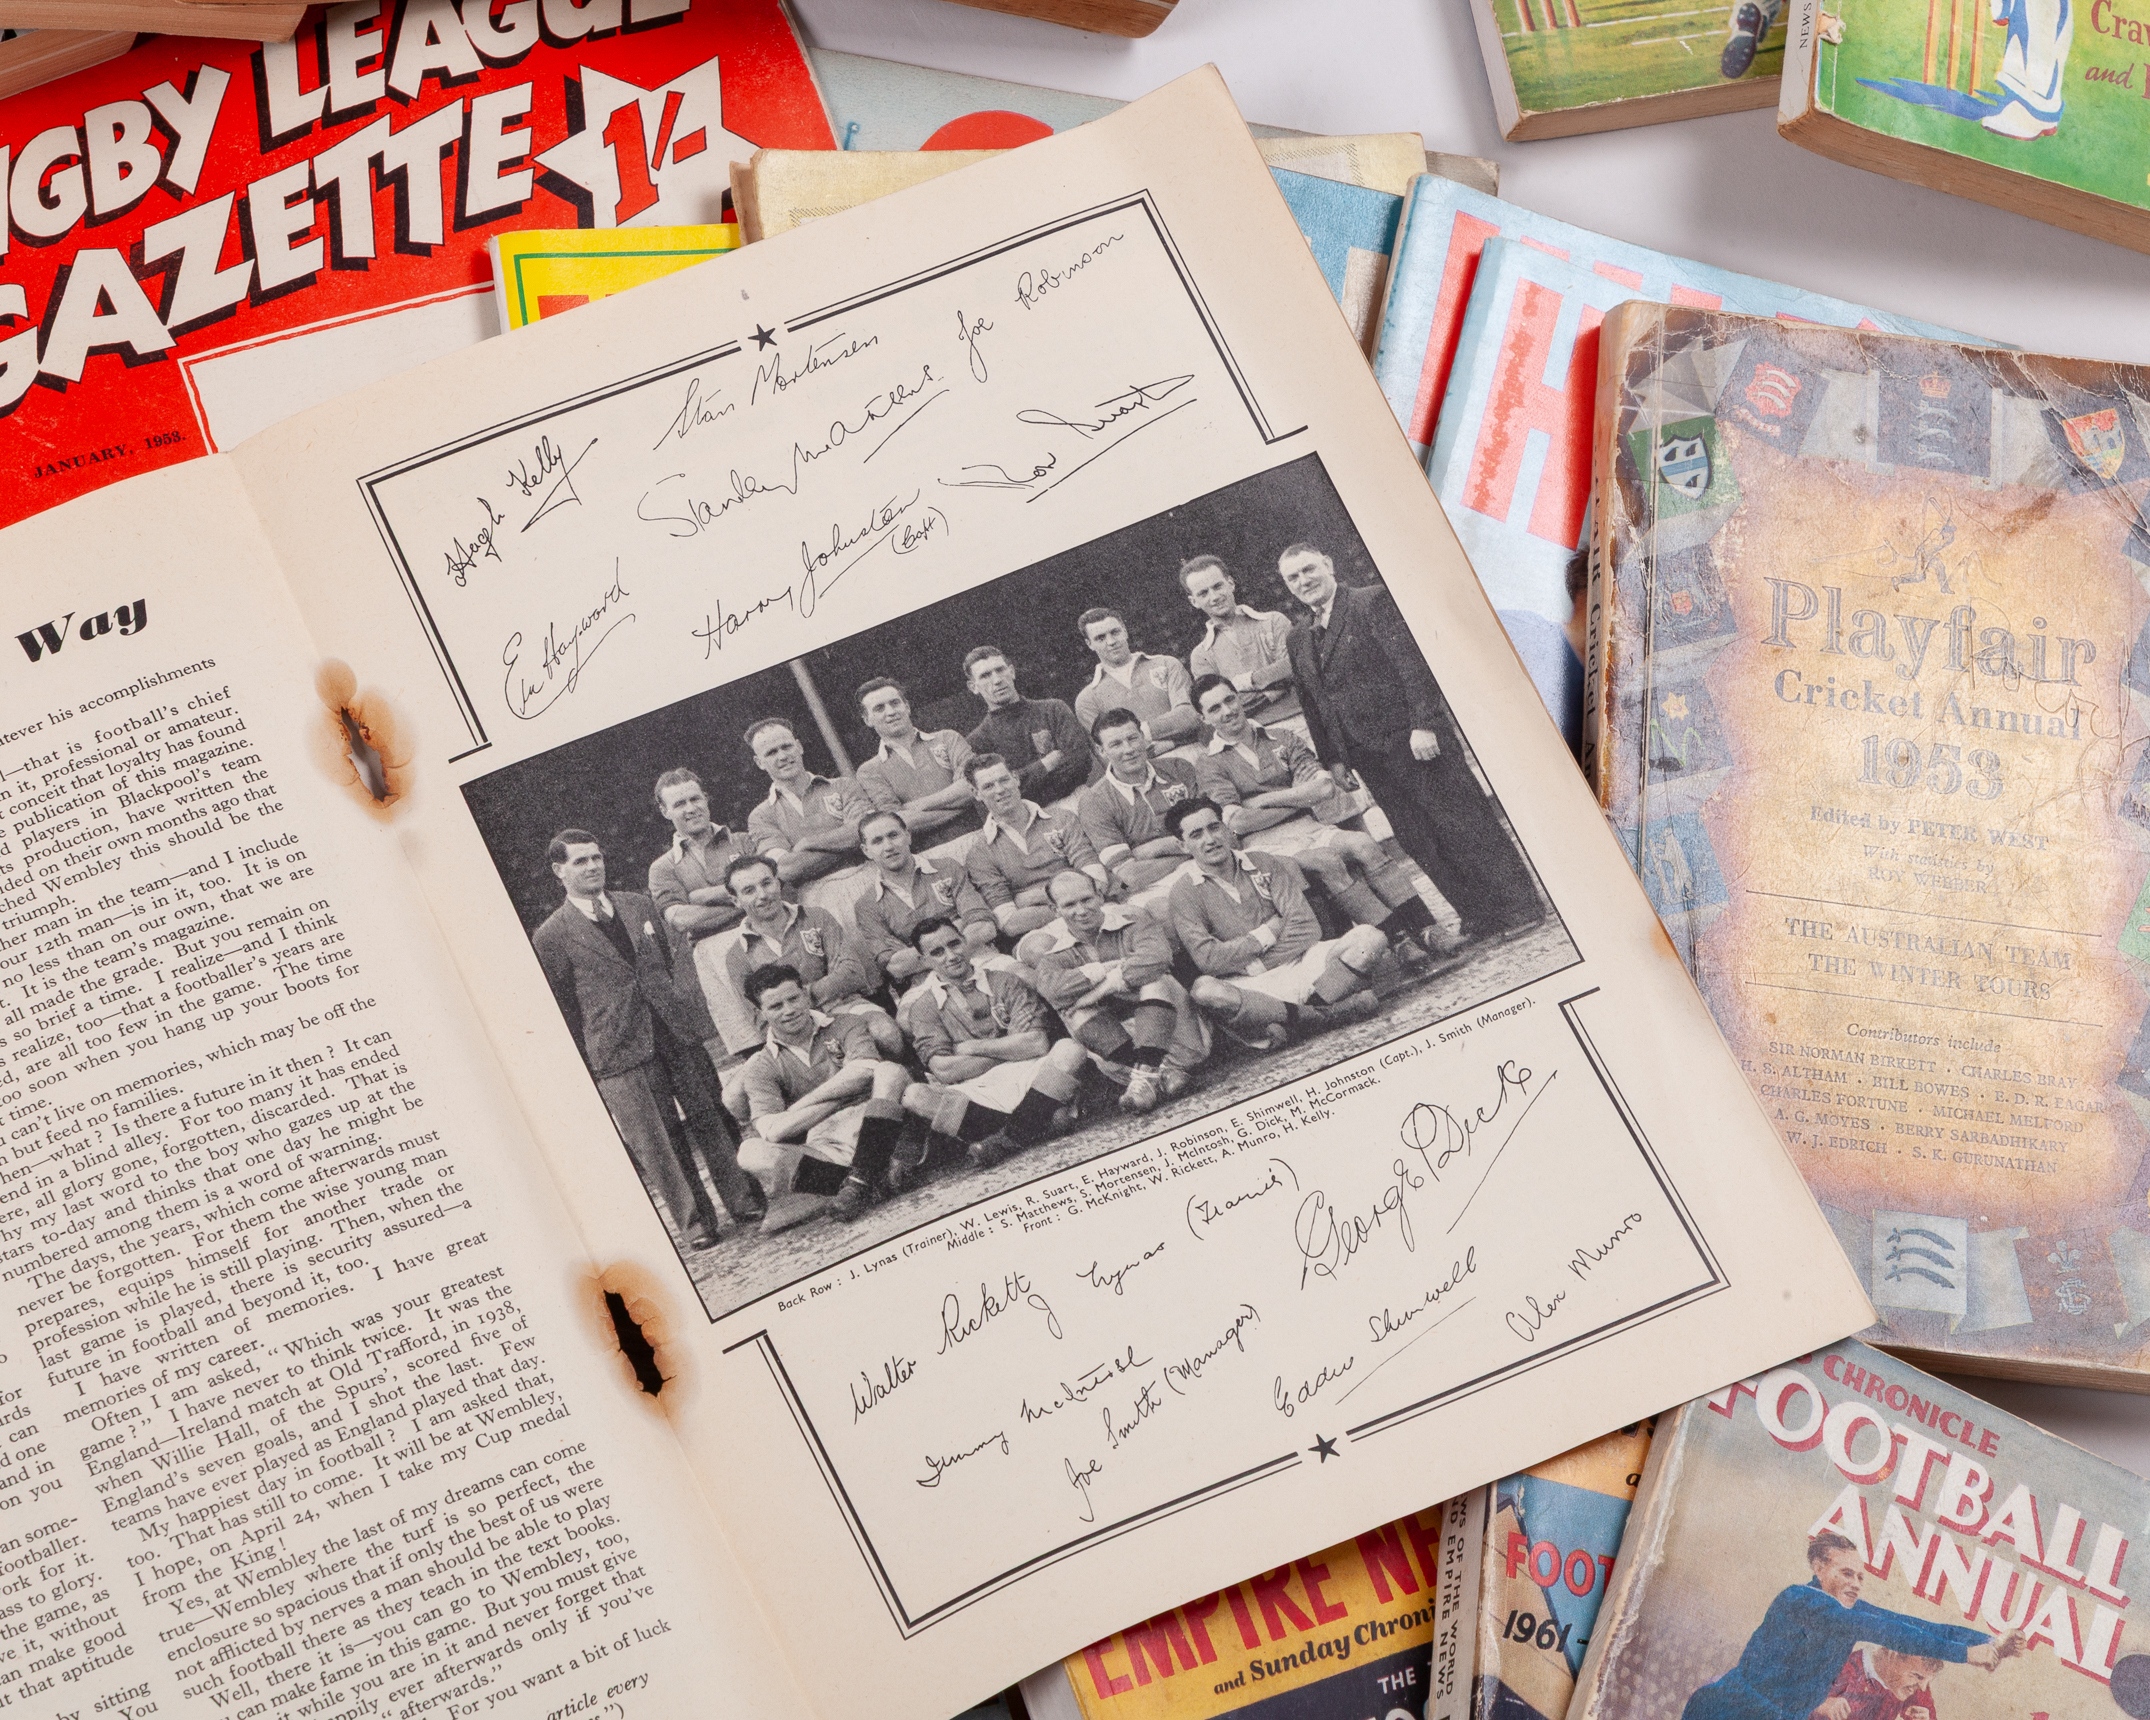 RUGBY LEAGUE
GAZETTE
1/-
JANUARY, 1953.
NEWS
Cra
and
Stan Mortensen
Joe Robinson
Hugh Kelly
Stanley Matthews
Ron Suart
Harry Johnston
(Capt)
Eric Hayward
Back Row : J. Lynas (Trainer), W. Lewis, R. Suart, E. Hayward, J. Robinson, E. Shimwell, H. Johnston (Capt.), J. Smith (Manager).
Middle : S. Matthews, S. Mortensen, J. McIntosh, G. Dick, M. McCormack.
Front : G. McKnight, W. Rickett, A. Munro, H. Kelly.
Walter Rickett
J Lynas (Trainer)
George Dick
Jimmy McIntosh
Joe Smith (Manager)
Eddie Shimwell
Alex Munro
Way
his accomplishments
—that is football's chief
in it, professional or amateur.
conceit that loyalty has found
publication of this magazine.
players in Blackpool's team
production, have written the
on their own months ago that
Wembley this should be the
triumph.
man in the team—and I include
our 12th man—is in it, too. It is on
no less than on our own, that we are
It is the team's magazine.
all made the grade. But you remain on
so brief a time. I realize—and I think
realize, too—that a footballer's years are
are all too few in the game. The time
too soon when you hang up your boots for
time.
can't live on memories, which may be off the
but feed no families.
then—what? Is there a future in it then? It can
end in a blind alley. For too many it has ended
there, all glory gone, forgotten, discarded. That is
why my last word to the boy who gazes up at the
stars to-day and thinks that one day he might be
numbered among them is a word of warning.
The days, the years, which come afterwards must
never be forgotten. For them the wise young man
prepares, equips himself for another trade or
profession while he is still playing. Then, when the
last game is played, there is security assured—a
future in football and beyond it, too.
I have written of memories. I have great
memories of my career.
Often I am asked, “ Which was your greatest
game ? ” I have never to think twice. It was the
England—Ireland match at Old Trafford, in 1938,
when Willie Hall, of the Spurs', scored five of
England's seven goals, and I shot the last. Few
teams have ever played as England played that day.
My happiest day in football ? I am asked that,
too. That has still to come. It will be at Wembley,
I hope, on April 24, when I take my Cup medal
from the King !
Yes, at Wembley the last of my dreams can come
true—Wembley where the turf is so perfect, the
enclosure so spacious that if only the best of us were
not afflicted by nerves a man should be able to play
such football there as they teach in the text books.
Well, there it is—you can go to Wembley, too,
can make fame in this game. But you must give
it while you are in it and never forget that
happily ever afterwards only if you've
“ afterwards.”
For you want a bit of luck
article every
for
can
one
and in
on you
an some-
footballer.
work for it.
to glory.
the game, as
it, without
can make good
that aptitude
by sitting
You
Playfair
Cricket Annual
1953
Edited by PETER WEST
With statistics by
ROY WEBBER
THE AUSTRALIAN TEAM
THE WINTER TOURS
Contributors include
SIR NORMAN BIRKETT · CHARLES BRAY
H. S. ALTHAM · BILL BOWES · E. D. R. EAGAR
CHARLES FORTUNE · MICHAEL MELFORD
A. G. MOYES · BERRY SARBADHIKARY
W. J. EDRICH · S. K. GURUNATHAN
CHRONICLE
FOOTBALL
ANNUAL
EMPIRE NE
and Sunday Chroni
THE
NEWS OF THE WORLD
AND EMPIRE NEWS
FOOT
1961-